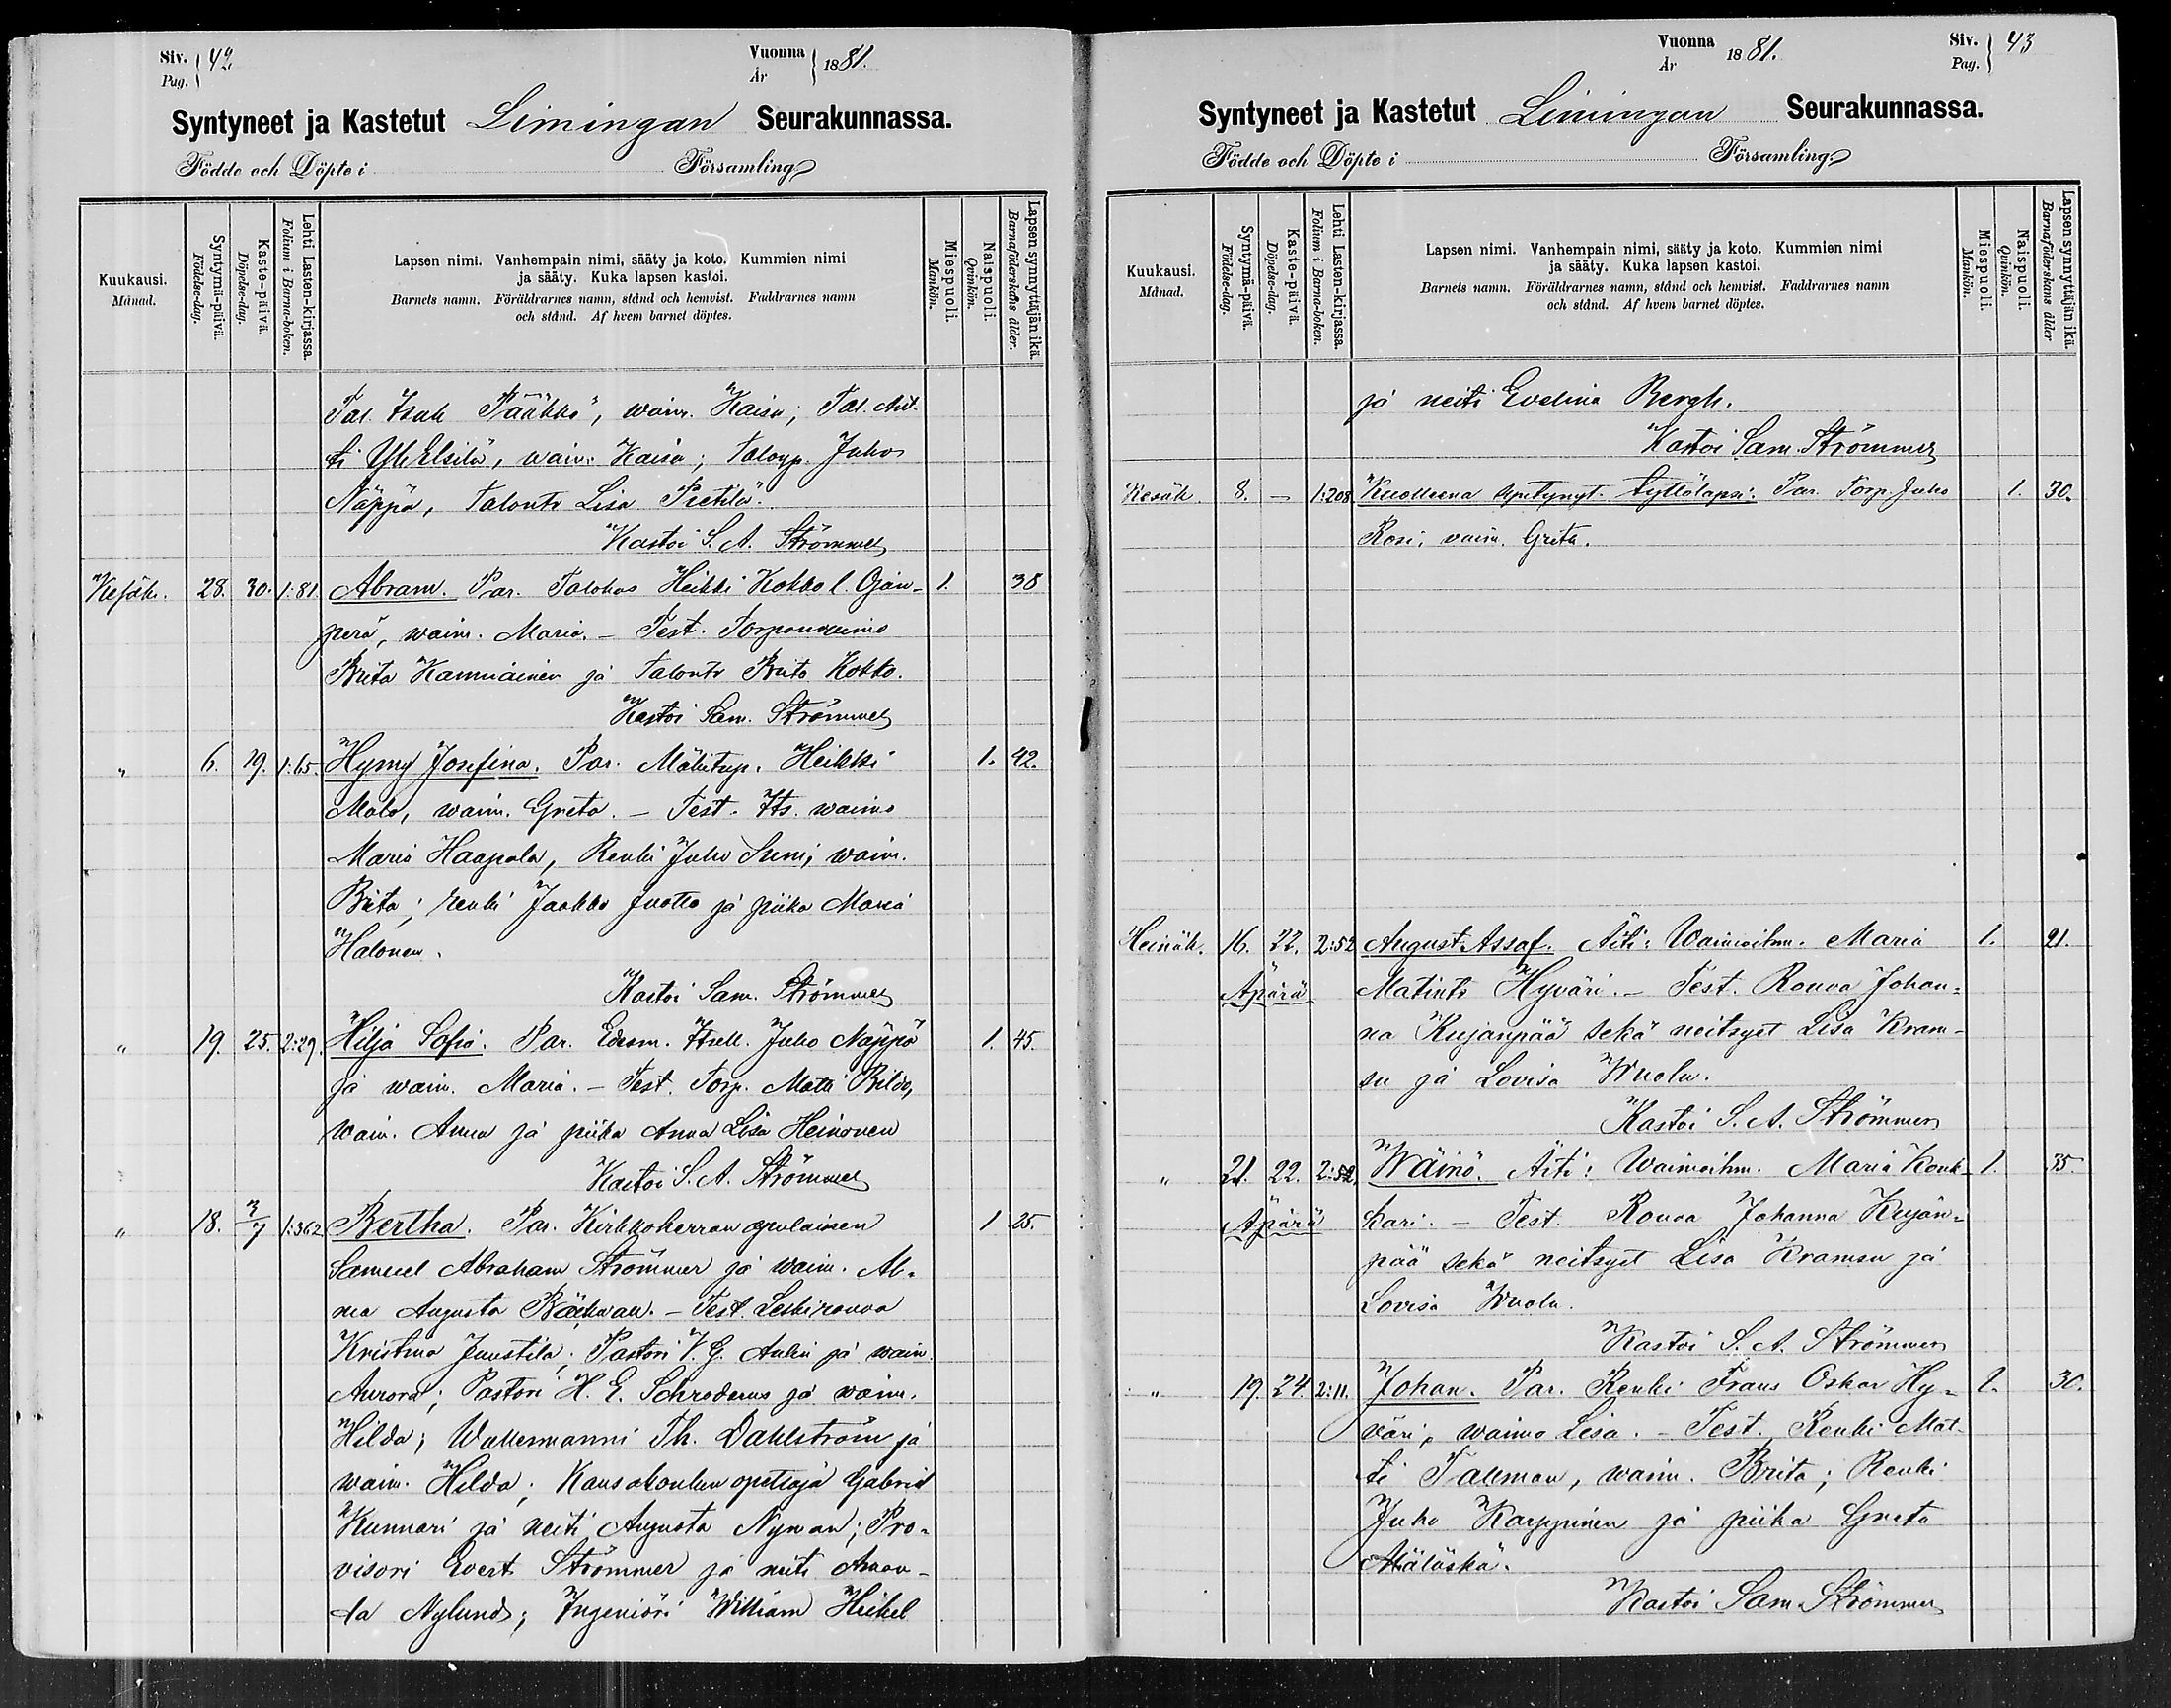 Siv. Pag. 42
Vuonna År 1881.
Syntyneet ja Kastetut Limingan Seurakunnassa.
Födde och Döpte i Församling
Kuukausi. Månad.
Syntymä-päivä. Födelse-dag.
Kaste-päivä. Döpelse-dag.
Lehti Lasten-kirjassa. Folium i Barna-boken.
Lapsen nimi. Vanhempain nimi, sääty ja koto. Kummien nimi
ja sääty. Kuka lapsen kastoi.
Barnets namn. Föräldrarnes namn, stånd och hemvist. Faddrarnes namn
och stånd. Af hvem barnet döptes.
Miespuoli. Mankön.
Naispuoli. Qvinkön.
Lapsen synnyttäjän ikä. Barnaföderskans ålder.
Tal. Isak Pääkkö, waim. Kaisa; Tal. Ant-
ti YliElsilä, waim. Kaisa; Taloup. Juho
Näppä, Talontr Lisa Pietilä.
Kastoi S. A. Strömmer
Kesäk. 28. 30. 1:81 Abram. Par. Talokas Heikki Kokko l. Ojan- 1. 38
perä, waim. Maria. – Test. Torponwaimo
Brita Kanniainen ja Talontr Brita Kokko.
Kastoi Sam. Strömmer
" 6. 29. 1:65. Hymy Josefina. Par. Mäkitup. Heikki 1. 42.
Malo, waim. Greta. – Test. Its. waimo
Maria Haapala, Renki Juho Suni, waim.
Brita; renki Jaakko Juotto ja piika Maria
Halonen.
Kastoi Sam. Strömmer
" 19. 25. 2:29. Hilja Sofia. Par. Edesm. Itsell. Juho Näppä 1. 45.
ja waim. Maria. – Test. Torp. Matti Bildo,
waim. Anna ja piika Anna Lisa Heinonen
Kastoi S. A. Strömmer
" 18. 3/7 1:362 Bertha. Par. Kirkkoherran apulainen 1 25.
Samuel Abraham Strömmer ja waim. Al-
ma Augusta Bäckman. – Test. Leskirouva
Kristina Juustila; Pastori V. G. Aulin ja waim.
Aurora; Pastori H. E. Schroderus ja waim.
Hilda; Wallesmanni Th. Dahlström ja
waim. Hilda; Kansakoulun opettaja Gabriel
Kunnari ja neiti Augusta Nyman; Pro-
visori Evert Strömmer ja neiti Aman-
da Nylund; Ingeniöri William Heikel
Vuonna År 1881.
Siv. Pag. 43
Syntyneet ja Kastetut Limingan Seurakunnassa.
Födde och Döpte i Församling
Kuukausi. Månad.
Syntymä-päivä. Födelse-dag.
Kaste-päivä. Döpelse-dag.
Lehti Lasten-kirjassa. Folium i Barna-boken.
Lapsen nimi. Vanhempain nimi, sääty ja koto. Kummien nimi
ja sääty. Kuka lapsen kastoi.
Barnets namn. Föräldrarnes namn, stånd och hemvist. Faddrarnes namn
och stånd. Af hvem barnet döptes.
Miespuoli. Mankön.
Naispuoli. Qvinkön.
Lapsen synnyttäjän ikä. Barnaföderskans ålder
ja neiti Evelina Bergh.
Kastoi Sam. Strömmer
Kesäk. 8. – 1:208 Kuolleena syntynyt tyttölapsi. Par. Torp. Juho 1. 30.
Rosi, vaim. Greta.
Heinäk. 16. 22. 2:52 August Assaf. Äiti: Waimoihm. Maria 1. 21.
Äpärä Matintr Hyväri. – Test. Rouva Johan-
na Kujanpää sekä neitsyet Lisa Kram-
su ja Lovisa Wuolu.
Kastoi S. A. Strömmer
" 21. 22. 2:52. Wäinö. Äiti: Waimoihm. Maria Konk- 1. 35.
Äpärä kari. – Test. Rouva Johanna Kujan-
pää sekä neitsyet Lisa Kramsu ja
Lovisa Wuolu.
Kastoi S. A. Strömmer
" 19. 24. 2:11. Johan. Par. Renki Frans Oskar Hy- 1. 30.
väri, waimo Lisa. – Test. Renki Mat-
ti Tallman, waim. Brita; Renki
Juho Karppinen ja piika Greta
Määläskä.
Kastoi Sam. Strömmer